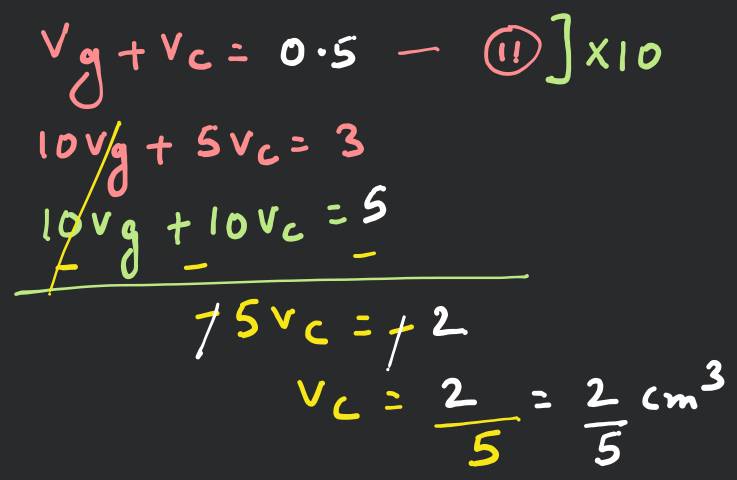 Vg + Vc = 0.5 — (11) ] ×10
10Vg + 5Vc = 3
10Vg + 10Vc = 5
− − −
-5Vc = -2
Vc = 2/5 = 2/5 cm³